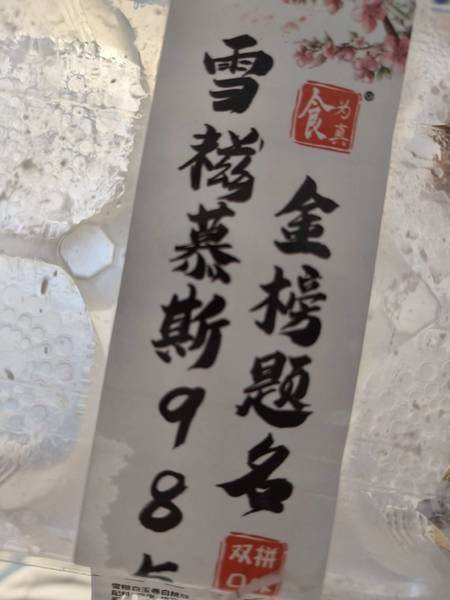 食为真®
金榜题名
双拼
雪糍慕斯98